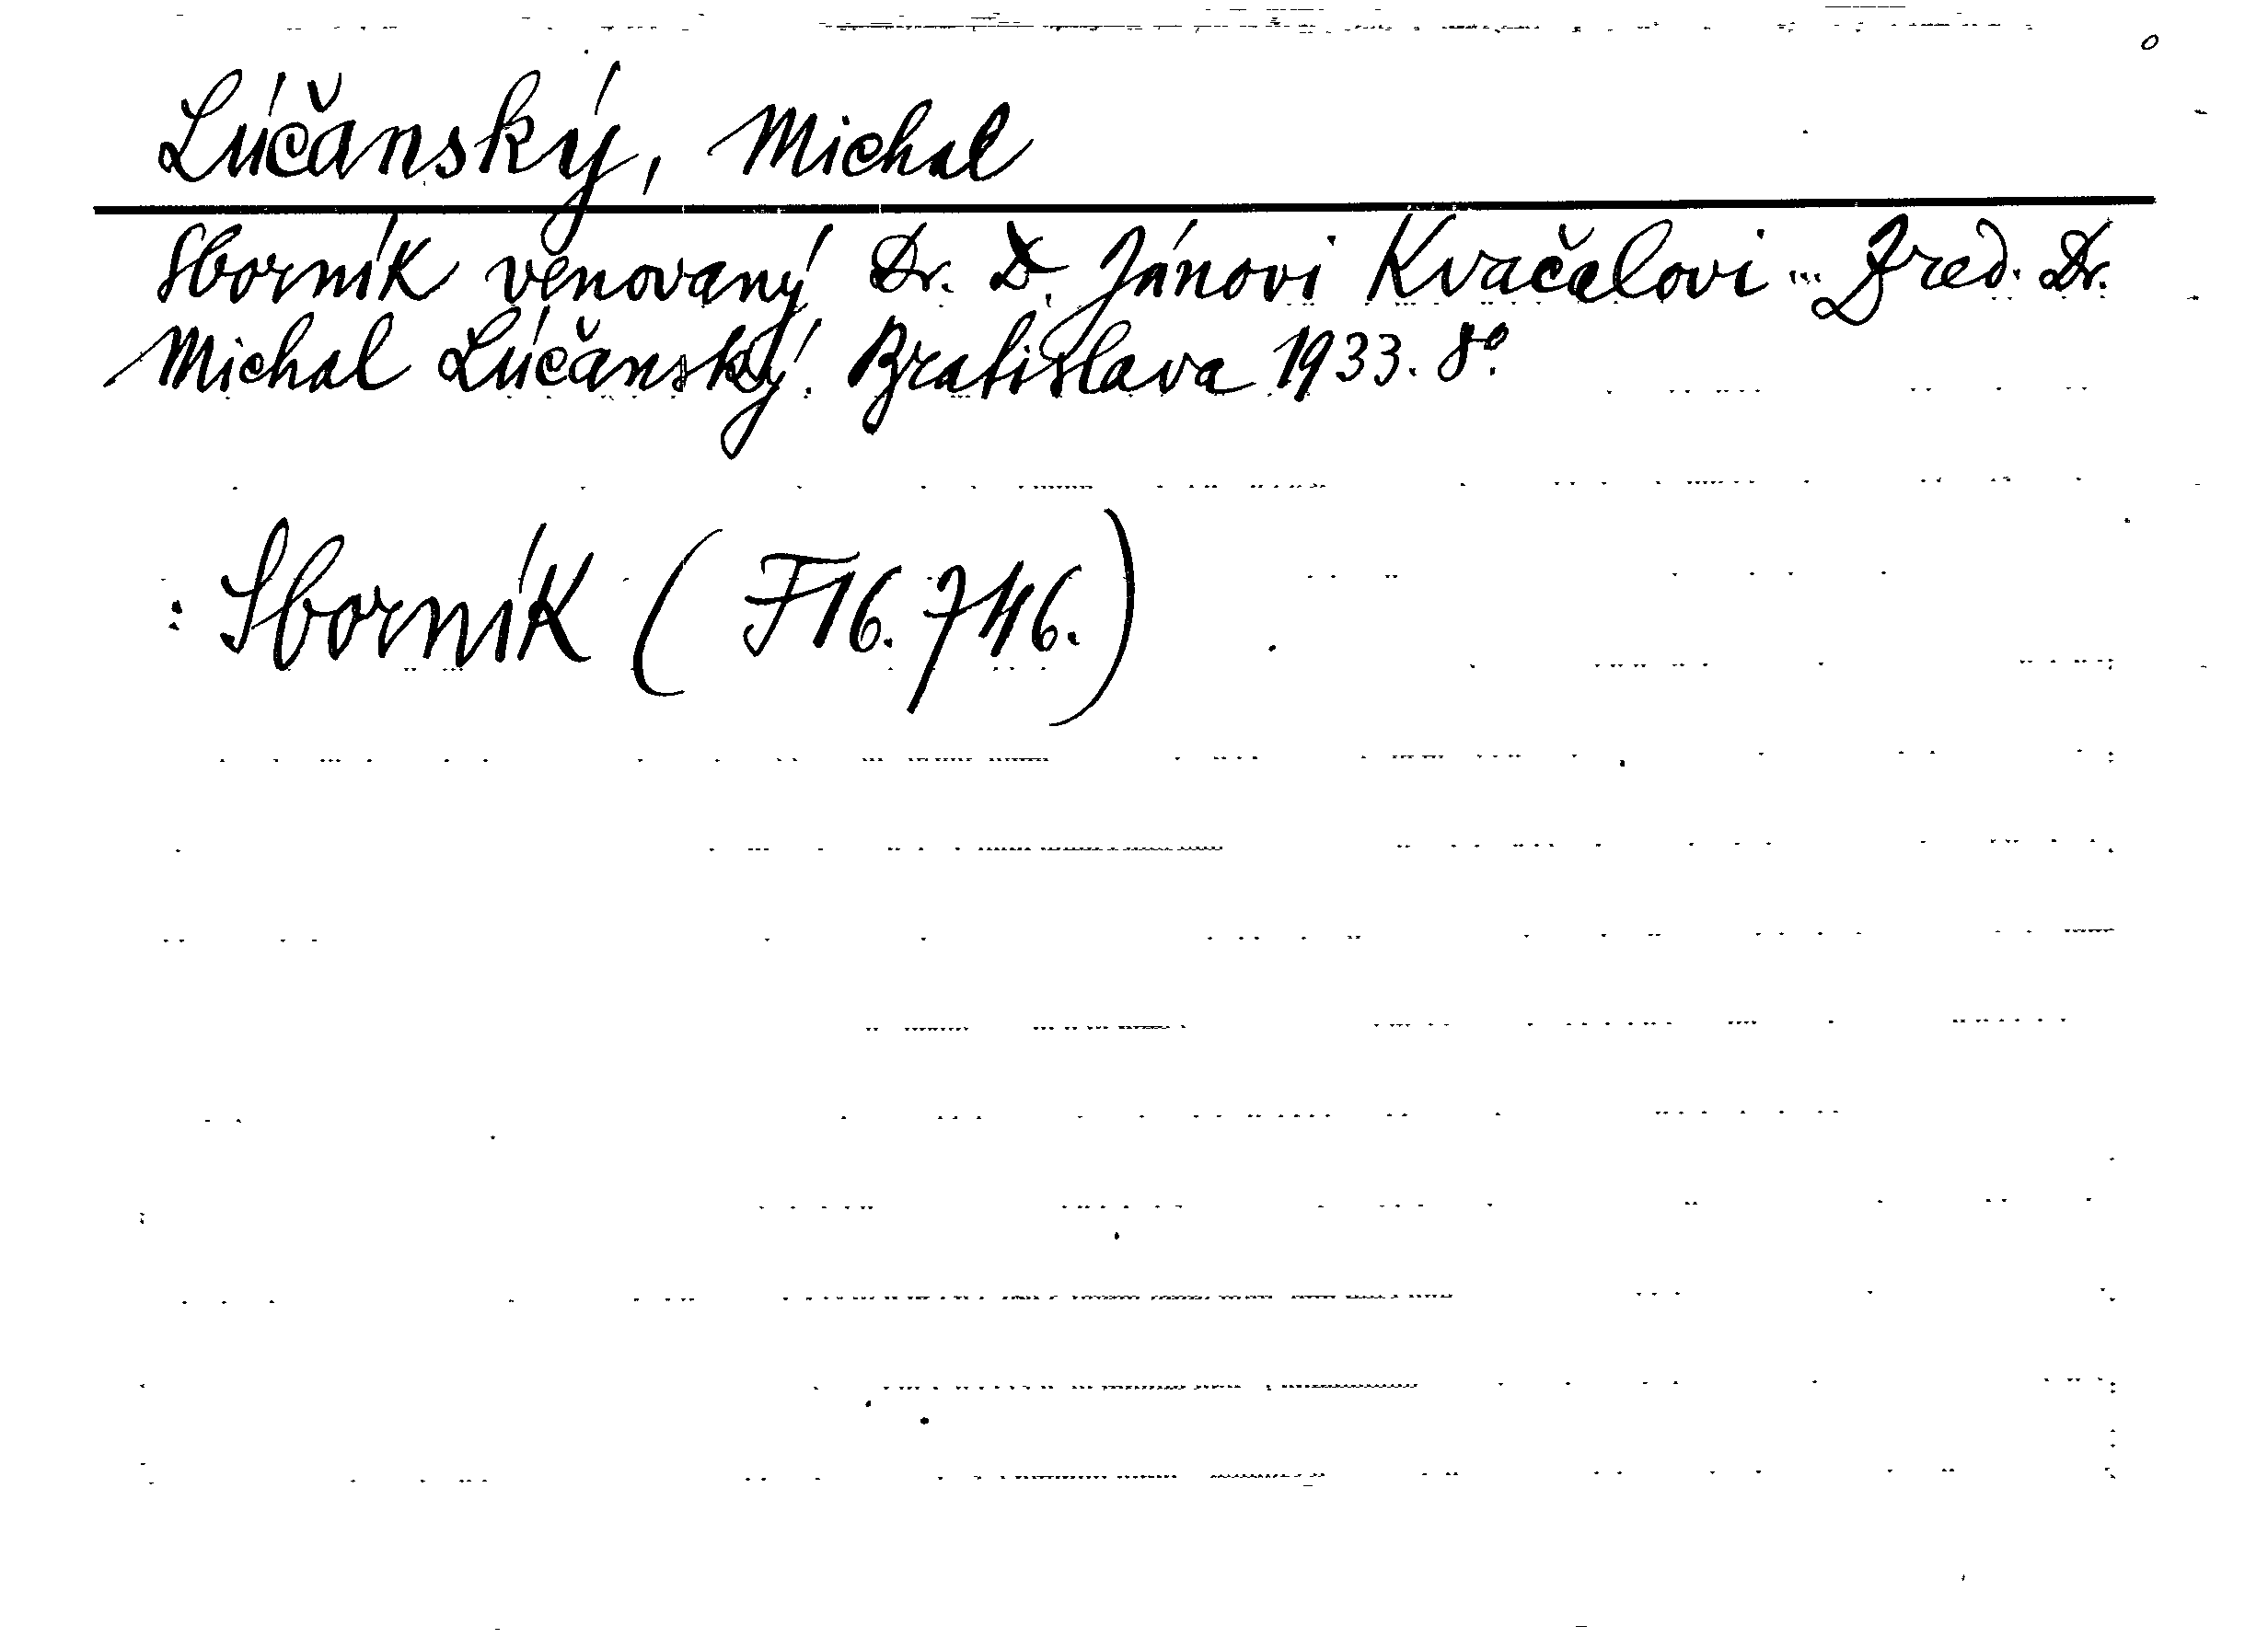 Lúčanský, Michal
Sborník venovaný Dr. D. Jánovi Kvačalovi ... Zred. Dr.
Michal Lúčanský. Bratislava 1933. 8°.
: Sborník (F16.746.)